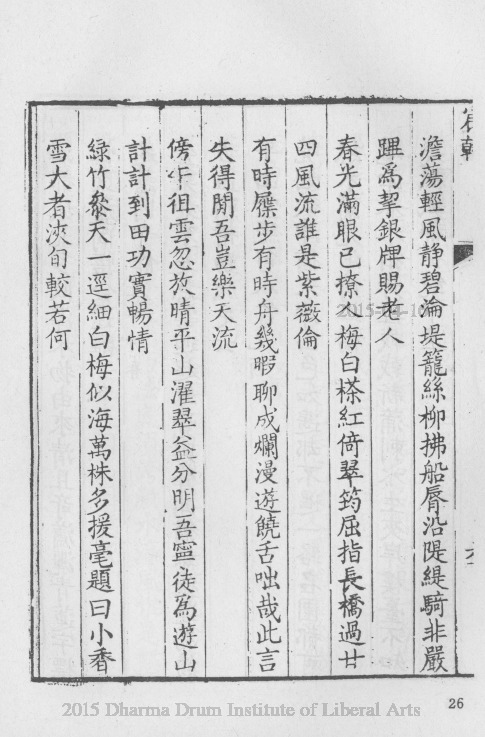 澹蕩輕風静碧淪堤籠絲柳拂船脣沿隄緹騎非嚴
蹕爲挈銀牌賜老人
春光滿眼已撩人梅白桚紅倚翠筠屈指長橋過廿
四風流誰是紫薇倫
有時屧步有時舟幾暇聊成爛漫遊饒舌咄哉此言
失得閒吾豈樂天流
傍午徂雲忽放晴平山濯翠益分明吾寧徒爲遊山
計計到田功實暢情
綠竹叅天一逕細白梅似海萬株多援毫題曰小香
雪大者浹旬較若何
26
2015 Dharma Drum Institute of Liberal Arts